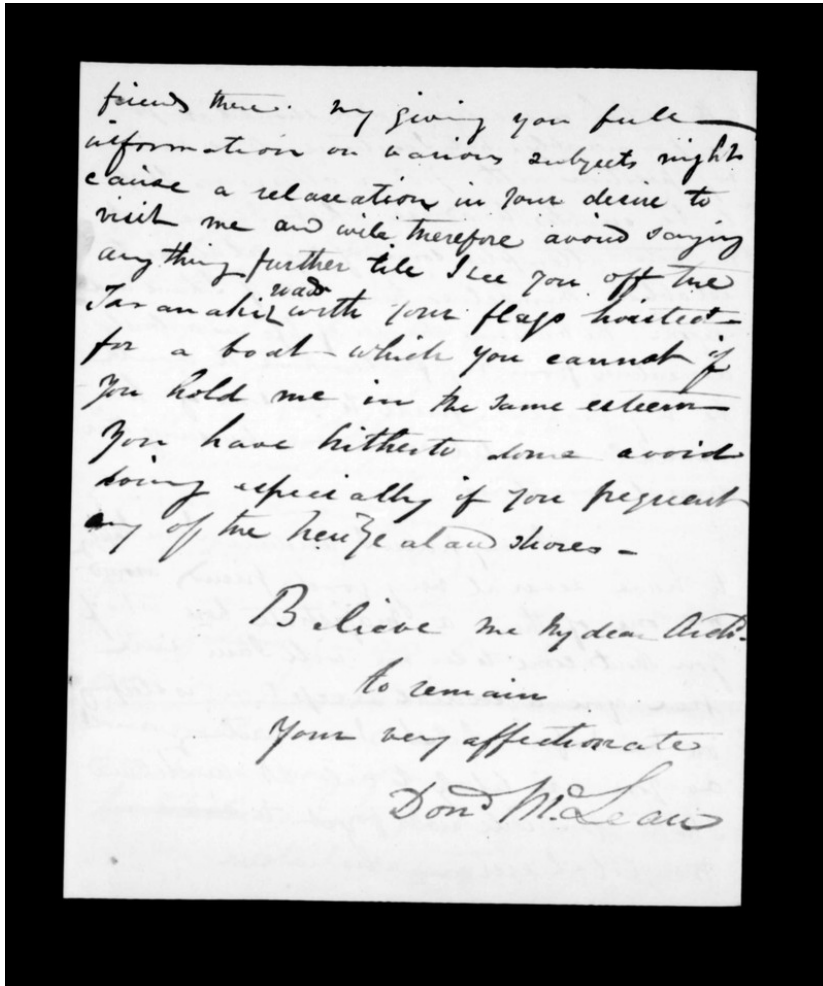 friends there. My giving you full
information on various subjects might
cause a relaxation in your desire to
visit me and will therefore avoid saying
any thing further till I see you off the
Taranaki roads with your flags hoisted
for a boat which you cannot if
you hold me in the same esteem
you have hitherto done avoid
doing especially if you frequent
any of the New Zealand shores -
Believe me My dear Archd.
to remain
Your very affectionate
Dond McLean